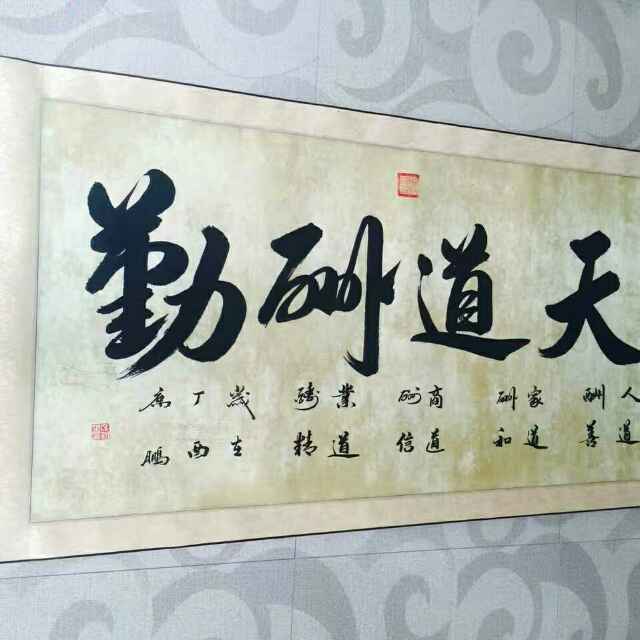 天道酬勤
人道
酬善
家道
酬和
商道
酬信
業道
酬精
歲在
丁酉
鵬